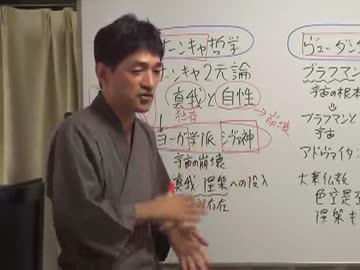 ーンキャ哲学
ーンキャ2元論
真我と自性
独存
→崩壊
ヨーガ学派 シヴァ神
宇宙の崩壊
真我 涅槃への没入
存在
ヴェーダン
ブラフマン
宇宙の根本
⇓
ブラフマンと
宇宙
アドヴァイタ:
大乗仏教
色空是
涅槃も